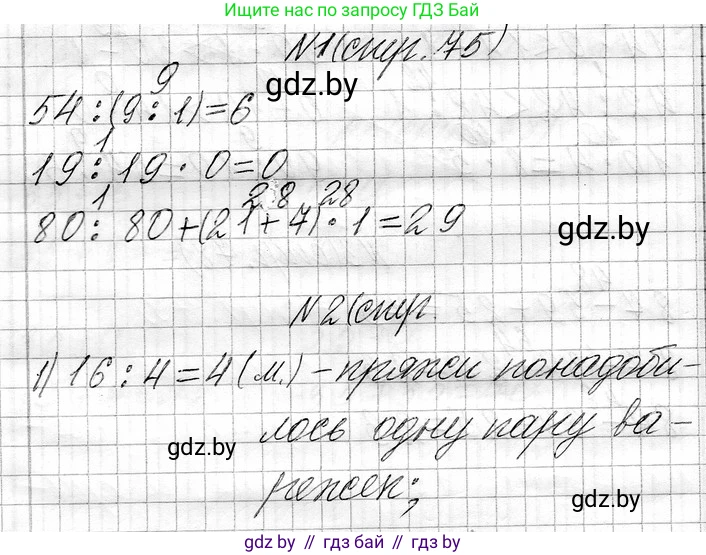 Ищите нас по запросу ГДЗ Бай
N1(стр. 75)
gdz.by
9
54:(9:1)=6
1
19:19·0=0
1 28 28
80:80+(21+7)·1=29
gdz.by
N2(стр.
1) 16:4=4(м.)-пряжи понадоби-
лось одну пару ва-
gdz.by
режек;
gdz.by
gdz.by // гдз бай // гдз by